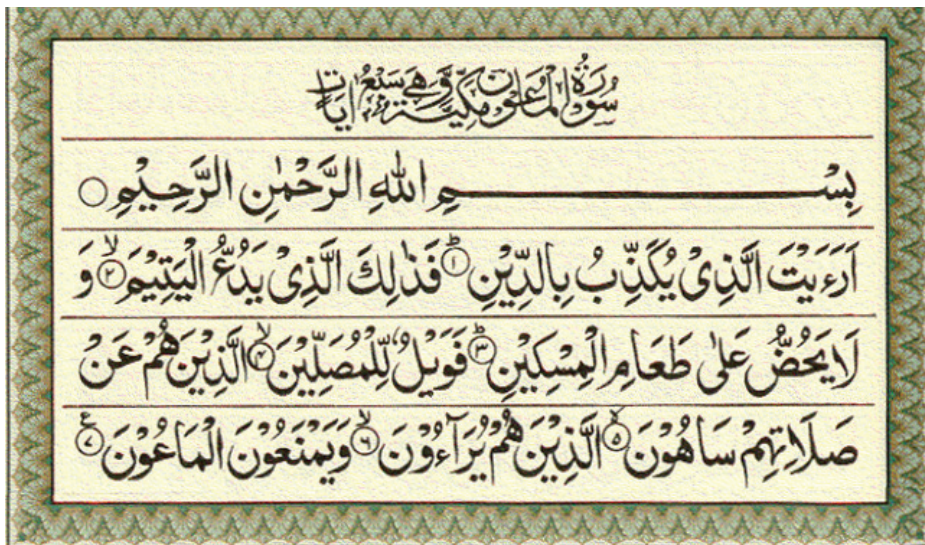 سُوْرَةُ الْمَاعُوْنِ مَكِّيَّةٌ وَّهِيَ سَبْعُ اٰيَاتٍ
بِسْمِ اللهِ الرَّحْمٰنِ الرَّحِيْمِ ○
اَرَءَيْتَ الَّذِىْ يُكَذِّبُ بِالدِّيْنِ ؕ﴿۱﴾ فَذٰلِكَ الَّذِىْ يَدُعُّ الْيَتِيْمَ ۙ﴿۲﴾ وَ
لَا يَحُضُّ عَلٰى طَعَامِ الْمِسْكِيْنِ ؕ﴿۳﴾ فَوَيْلٌ لِّلْمُصَلِّيْنَ ۙ﴿۴﴾ الَّذِيْنَ هُمْ عَنْ
صَلَاتِهِمْ سَاهُوْنَ ۙ﴿۵﴾ الَّذِيْنَ هُمْ يُرَآءُوْنَ ۙ﴿۶﴾ وَيَمْنَعُوْنَ الْمَاعُوْنَ ﴿۷﴾ ع